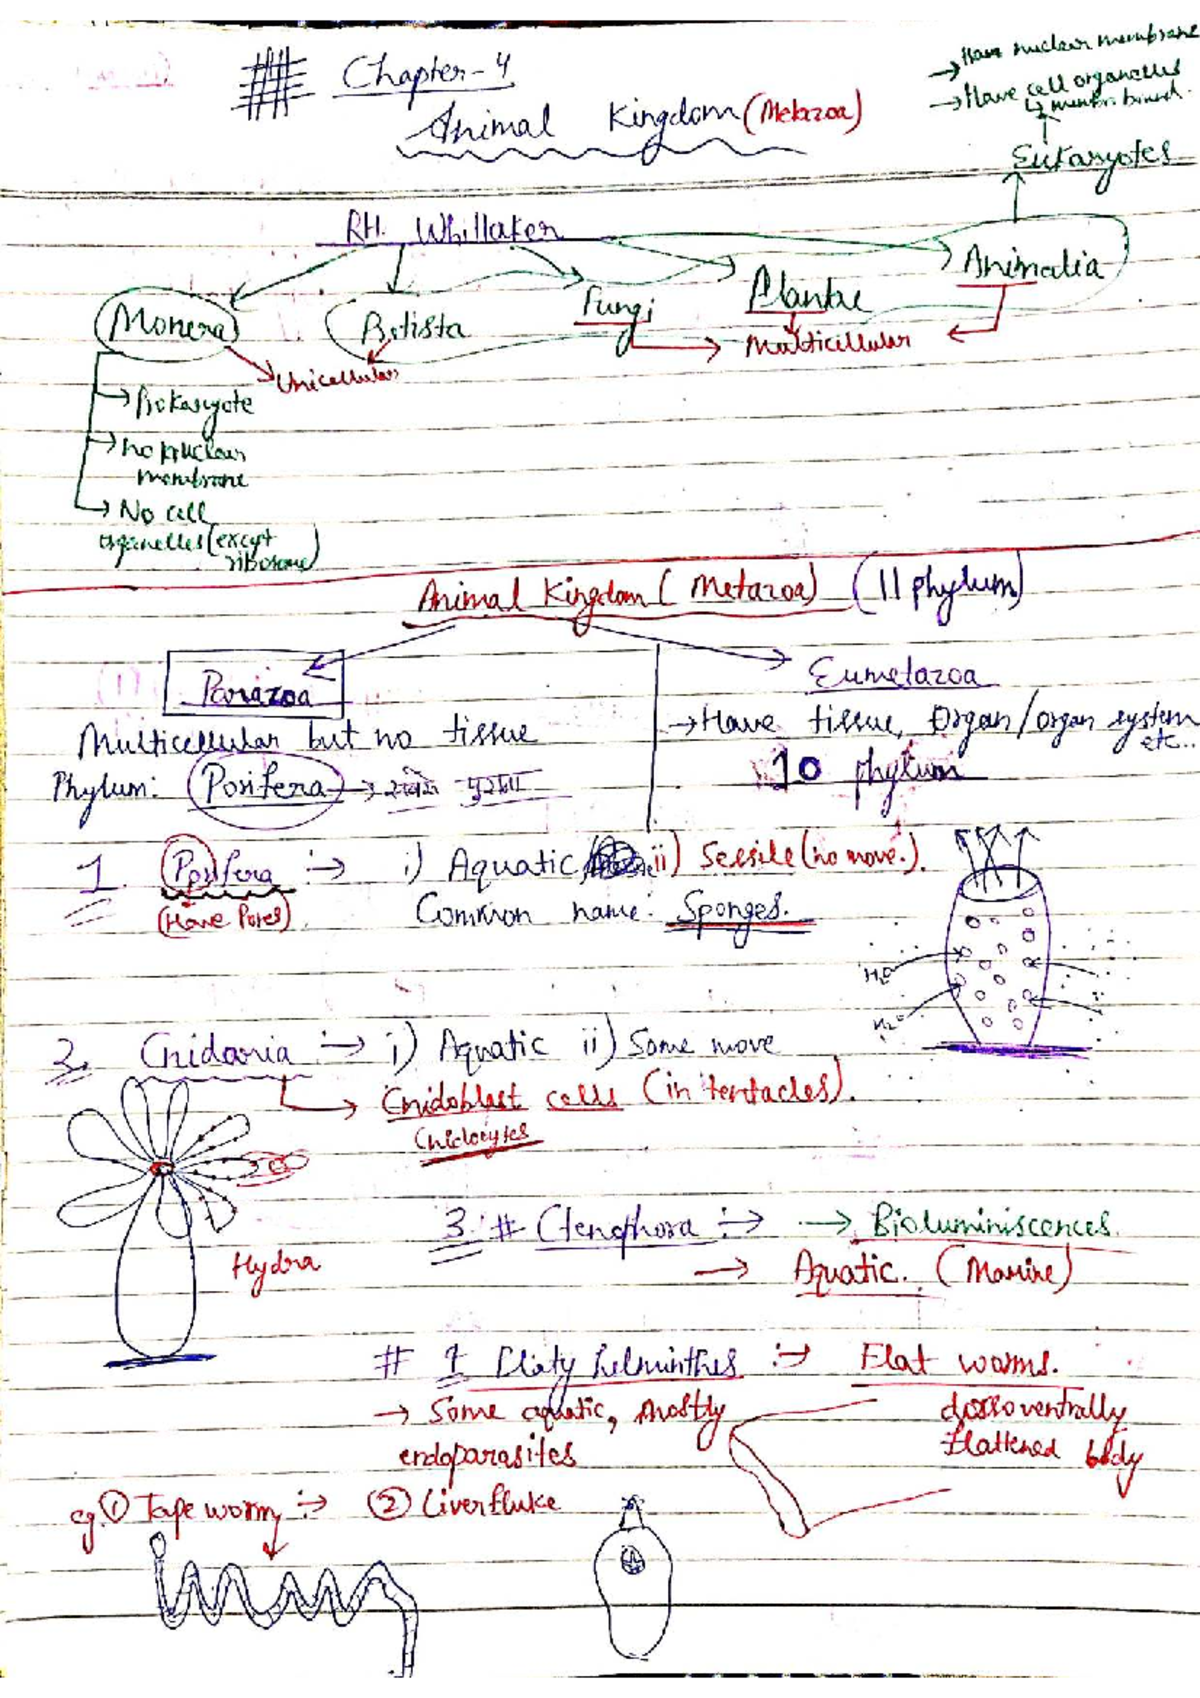 Chapter-4
Animal Kingdom (Metazoa)
→ Have nuclear membrane
→ Have cell organelles
↳ membrane bound.
Eukaryotes
RH. Whittaker
Monera
Protista
Fungi
Plantae
Animalia
Unicellular
Multicellular
→ Prokaryote
→ no nuclear
membrane
→ No cell
organelles (except
ribosome)
Animal Kingdom (Metazoa) (11 phylum)
Parazoa
Multicellular but no tissue
Phylum: Porifera →
Eumetazoa
→ Have tissue, Organ/organ system
etc..
10 phylum
1. Porifera :→ i) Aquatic, ii) Sessile (no move.).
(Have Pores). Common name: Sponges.
H2O
H2O
2. Cnidaria :→ i) Aquatic ii) Some move
→ Cnidoblast cells (in tentacles).
Cnidocytes
Hydra
3. # Ctenophora :→ → Bioluminiscences.
→ Aquatic. (Marine)
# 4 Platy helminthes :→ Flat worms.
→ Some aquatic, Mostly
endoparasites
dorsoventrally
flattened body
eg. ① Tape worm :→ ② Liverfluke